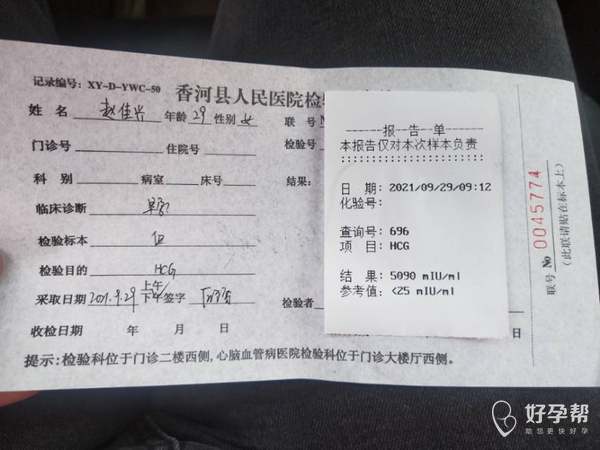 记录编号：XY-D-YWC-50
香河县人民医院检验
姓 名 赵佳兴 年龄 29 性别 女 联 号 N
门诊号 住院号 检验号
科 别 病室 床号 结果：
临床诊断 早孕
检验标本 血
检验目的 HCG
采取日期 2021.9.29 上午 下午 签字 检验者
收检日期 年 月 日
提示：检验科位于门诊二楼西侧，心脑血管病医院检验科位于门诊大楼厅西侧。
报 告 单
本报告仅对本次样本负责
日 期: 2021/09/29/09:12
化验号:
查询号: 696
项 目: HCG
结 果: 5090 mIU/ml
参考值: <25 mIU/ml
联号 No 0045774
（此联请贴在标本上）
好孕帮
助您更快好孕